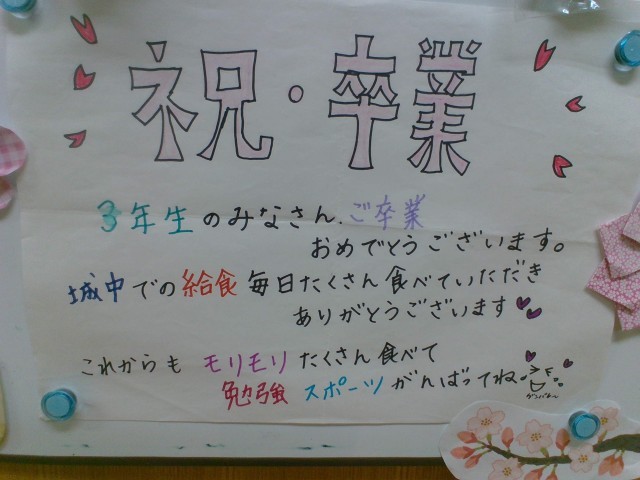 祝・卒業
3年生のみなさん、ご卒業
おめでとうございます。
城中での給食毎日たくさん食べていただき
ありがとうございます
これからも モリモリたくさん食べて
勉強 スポーツがんばってね